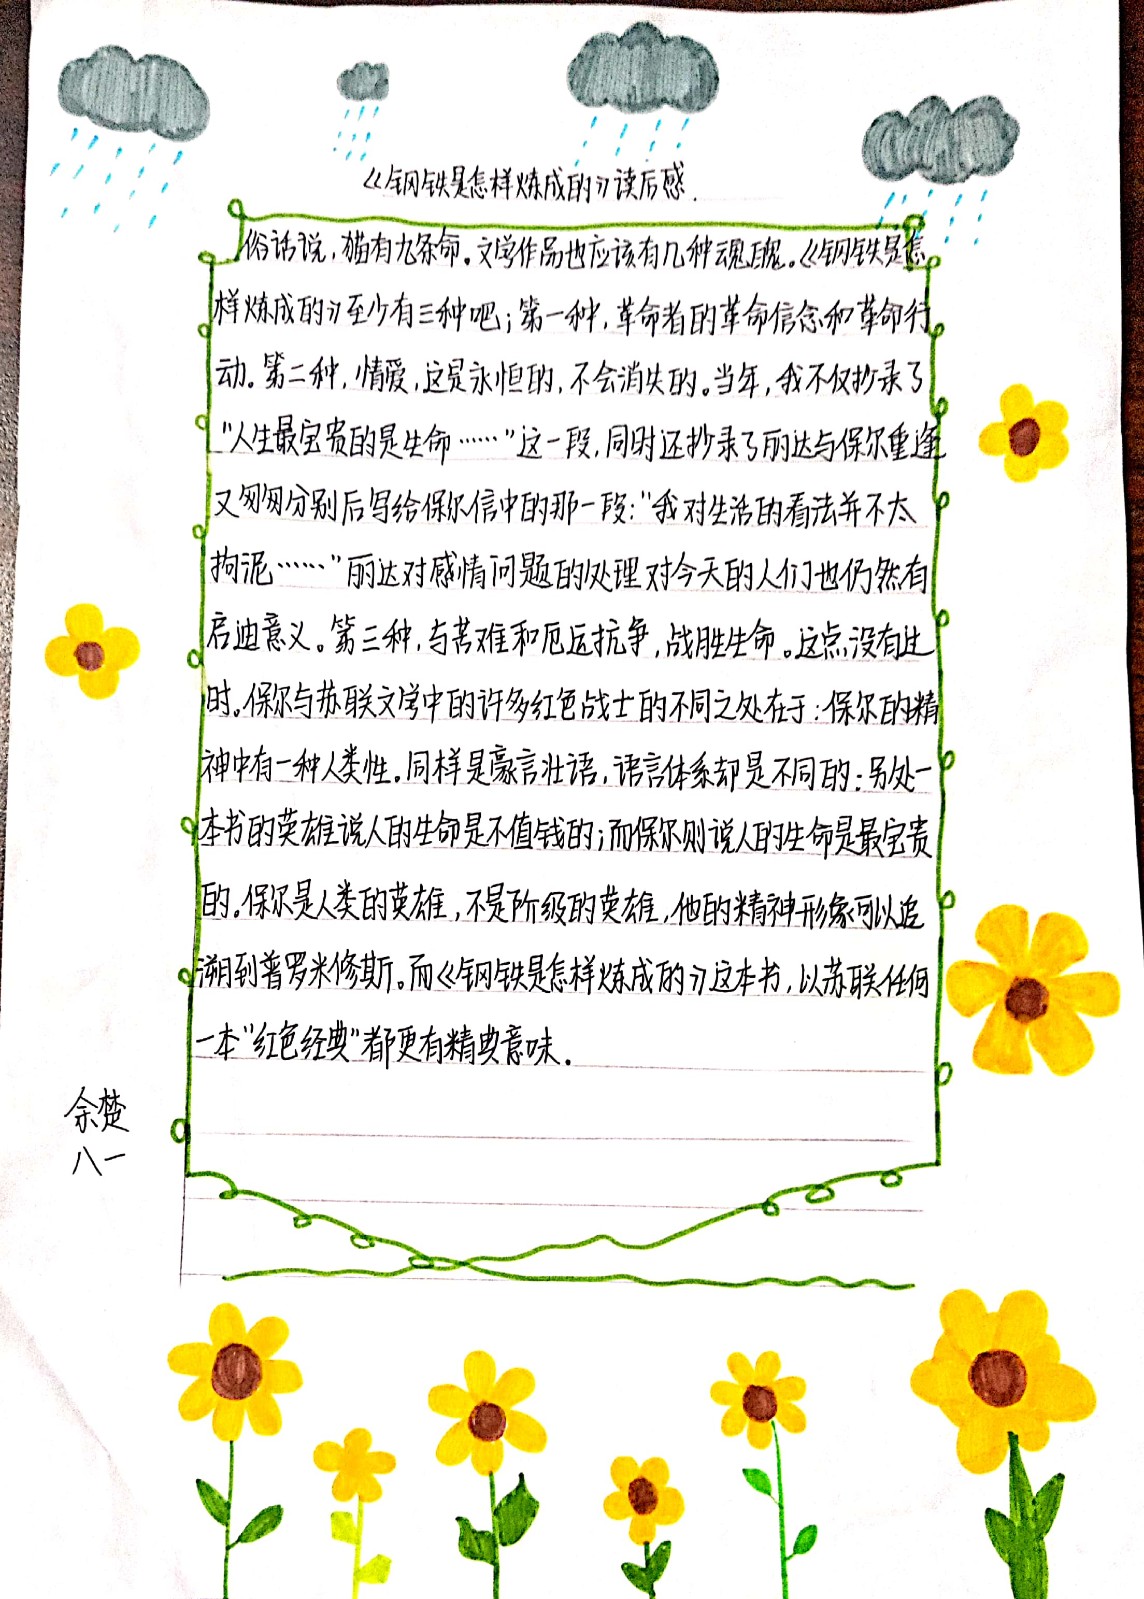 《钢铁是怎样炼成的》读后感.
俗话说，猫有九条命。文学作品也应该有几种魂魄。《钢铁是怎
样炼成的》至少有三种吧；第一种，革命者的革命信念和革命行
动。第二种，情爱，这是永恒的，不会消失的。当年，我不仅抄录了
"人生最宝贵的是生命……"这一段，同时还抄录了丽达与保尔重逢
又匆匆分别后写给保尔信中的那一段："我对生活的看法并不太
拘泥……"丽达对感情问题的处理对今天的人们也仍然有
启迪意义。第三种，与苦难和厄运抗争，战胜生命。这点没有过
时。保尔与苏联文学中的许多红色战士的不同之处在于：保尔的精
神中有一种人类性。同样是豪言壮语，语言体系却是不同的：另处一
本书的英雄说人的生命是不值钱的；而保尔则说人的生命是最宝贵
的。保尔是人类的英雄，不是阶级的英雄，他的精神形象可以追
溯到普罗米修斯。而《钢铁是怎样炼成的》这本书，以苏联任何
一本"红色经典"都更有精典意味。
余楚
八一